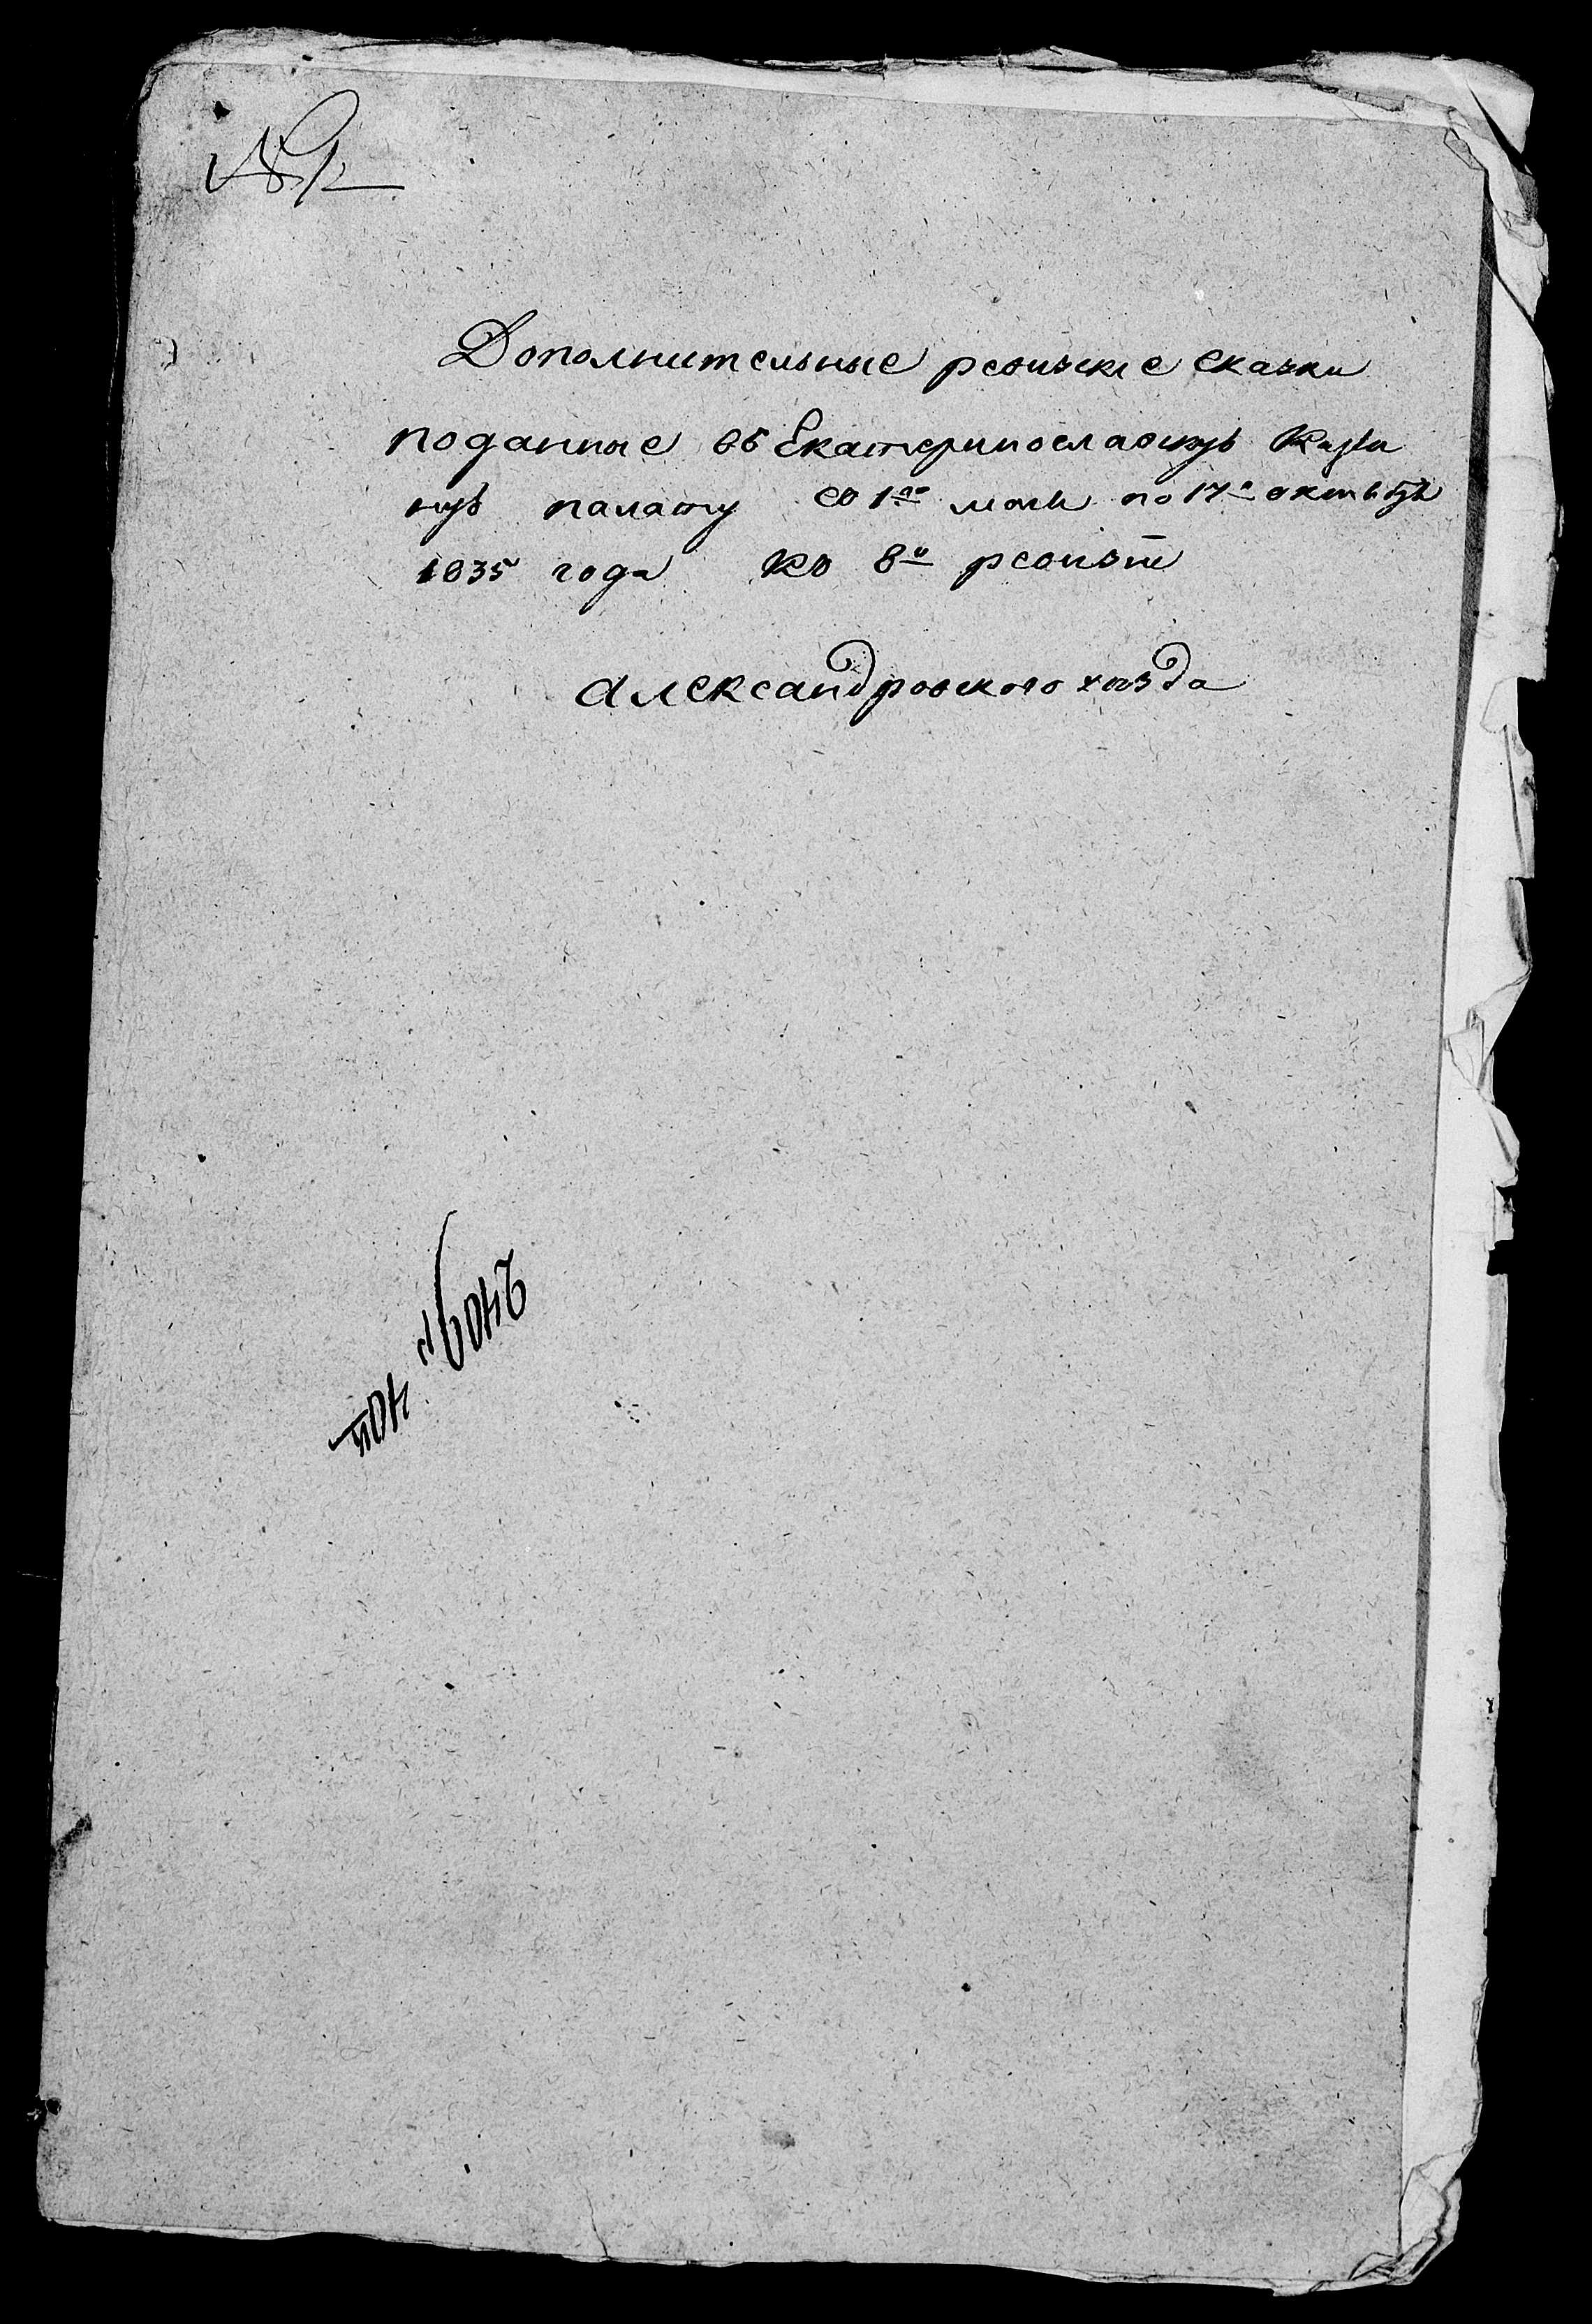 Дополнительные ревизские сказки
поданные въ Екатеринославскую Казен
ную палату со 1го мая по 17е октября
1835 года ко 8й ревизіи
Александровского уезда